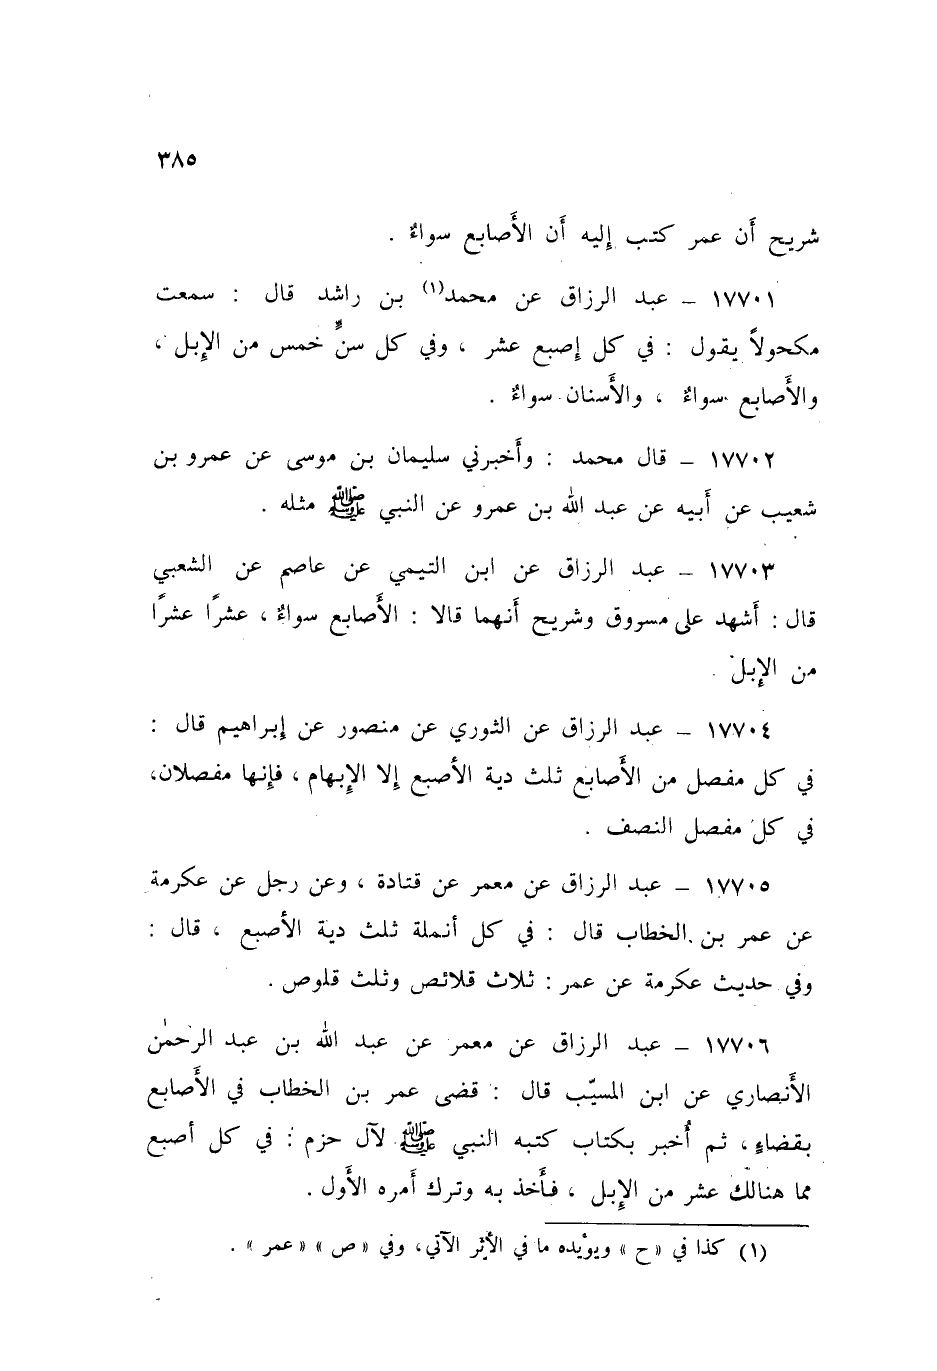 ٣٨٥
شريح أَن عمر كتب إِليه أَن الأَصابع سواءٌ .
١٧٧٠١ – عبد الرزاق عن محمد(١) بن راشد قال : سمعت
مكحولاً يقول : في كل إصبع عشر ، وفي كل سنٍّ خمس من الإِبل ،
والأَصابع سواءٌ ، والأَسنان سواءٌ .
١٧٧٠٢ – قال محمد : وأَخبرني سليمان بن موسى عن عمرو بن
شعيب عن أَبيه عن عبد الله بن عمرو عن النبي ﷺ مثله .
١٧٧٠٣ – عبد الرزاق عن ابن التيمي عن عاصم عن الشعبي
قال : أَشهد على مسروق وشريح أَنهما قالا : الأَصابع سواءٌ ، عشرًا عشرًا
من الإِبل .
١٧٧٠٤ – عبد الرزاق عن الثوري عن منصور عن إِبراهيم قال :
في كل مفصل من الأَصابع ثلث دية الأصبع إلا الإِبهام ، فإنها مفصلان،
في كل مفصل النصف .
١٧٧٠٥ – عبد الرزاق عن معمر عن قتادة ، وعن رجل عن عكرمة
عن عمر بن الخطاب قال : في كل أنملة ثلث دية الأصبع ، قال :
وفي حديث عكرمة عن عمر : ثلاث قلائص وثلث قلوص .
١٧٧٠٦ – عبد الرزاق عن معمر عن عبد الله بن عبد الرحمٰن
الأَنصاري عن ابن المسيّب قال : قضى عمر بن الخطاب في الأَصابع
بقضاءٍ ، ثم أُخبر بكتاب كتبه النبي ﷺ لآل حزم : في كل أصبع
مما هنالك عشر من الإِبل ، فأَخذ به وترك أَمره الأَول .
(١) كذا في «ح» ويؤيده ما في الأثر الآتي، وفي «ص» «عمر» .